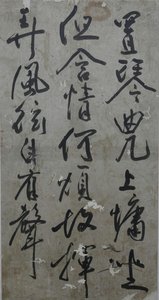 置琴曲几上慵坐
但含情何煩故揮
弄風弦自有聲